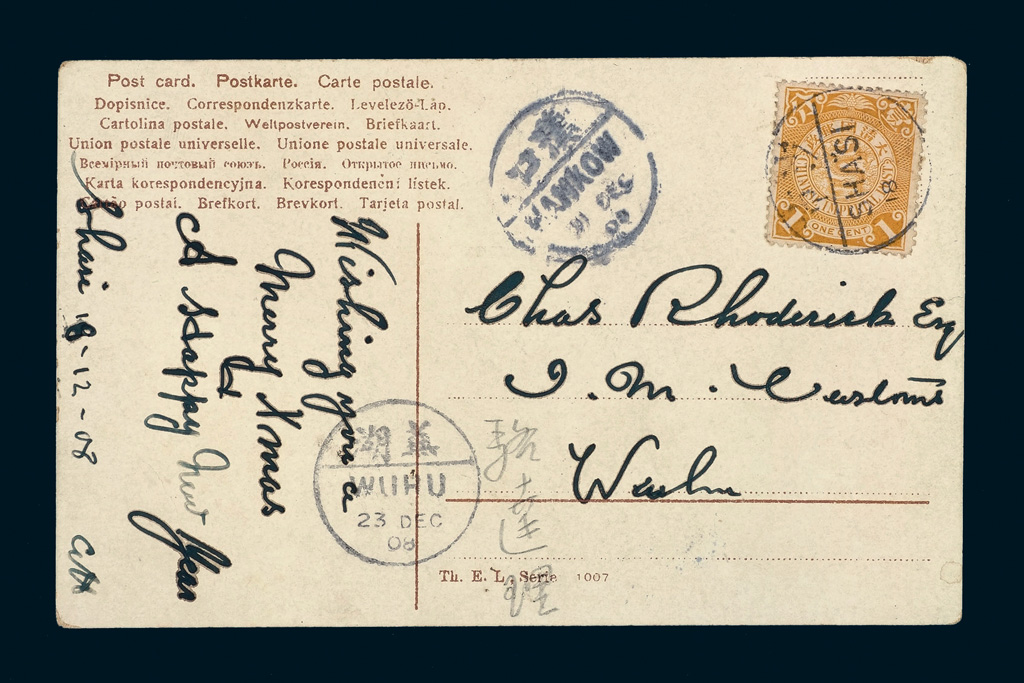 Post card. Postkarte. Carte postale.
Dopisnice. Correspondenzkarte. Levelező-Lap.
Cartolina postale. Weltpostverein. Briefkaart.
Union postale universelle. Unione postale universale.
Всемірный почтовый союзъ. Россія. Открытое письмо.
Karta korespondencyjna. Korespondenční lístek.
postal. Brefkort. Brevkort. Tarjeta postal.
HANKOW
DEC
SHASI
18
ONE CENT
1 1
Chas Rhoderick Esq
I. M. Customs
Wuhu
Wishing you a
Merry Xmas
&
A Happy New Year
Shasi 18-12-08
蕪湖
WUHU
23 DEC
08
駱
達
理
Th. E. L. Serie 1007